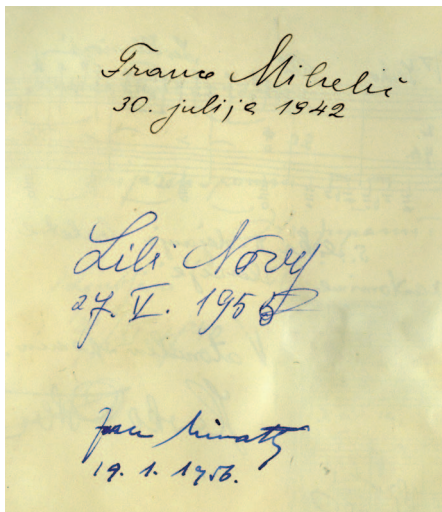 France Mihelič
30. julija 1942
Lili Novy
27. V. 1955
Ivan Minatti
19. 1. 1956.